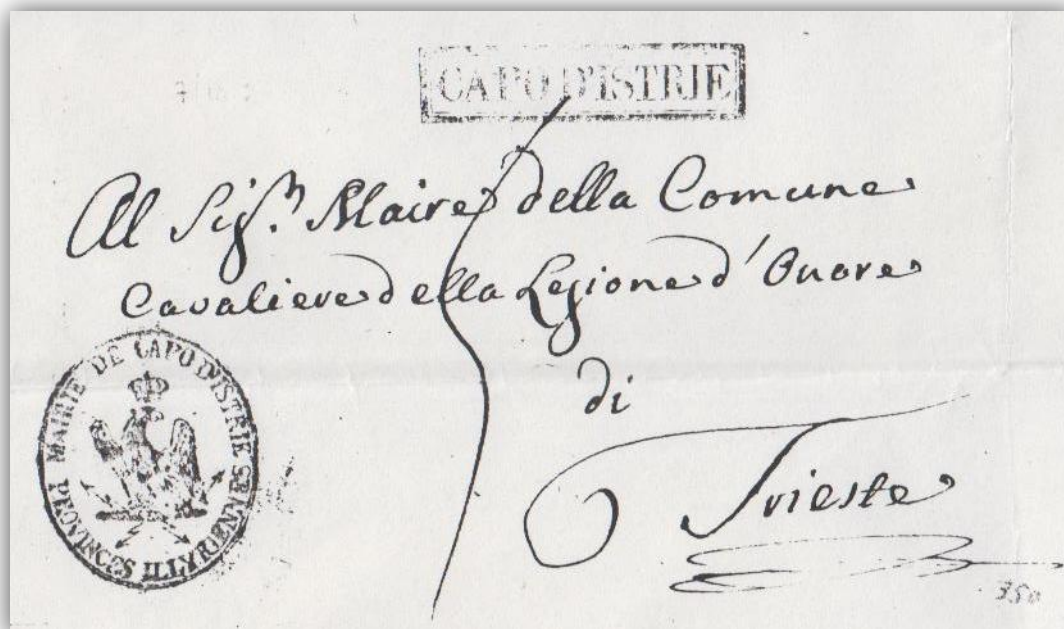 CAPO D'ISTRIE
Al Sig.r Maire della Comune
Cavaliere della Legione d'Onore
di
Trieste
MAIRIE DE CAPO D'ISTRIE
PROVINCES ILLYRIENNES
350